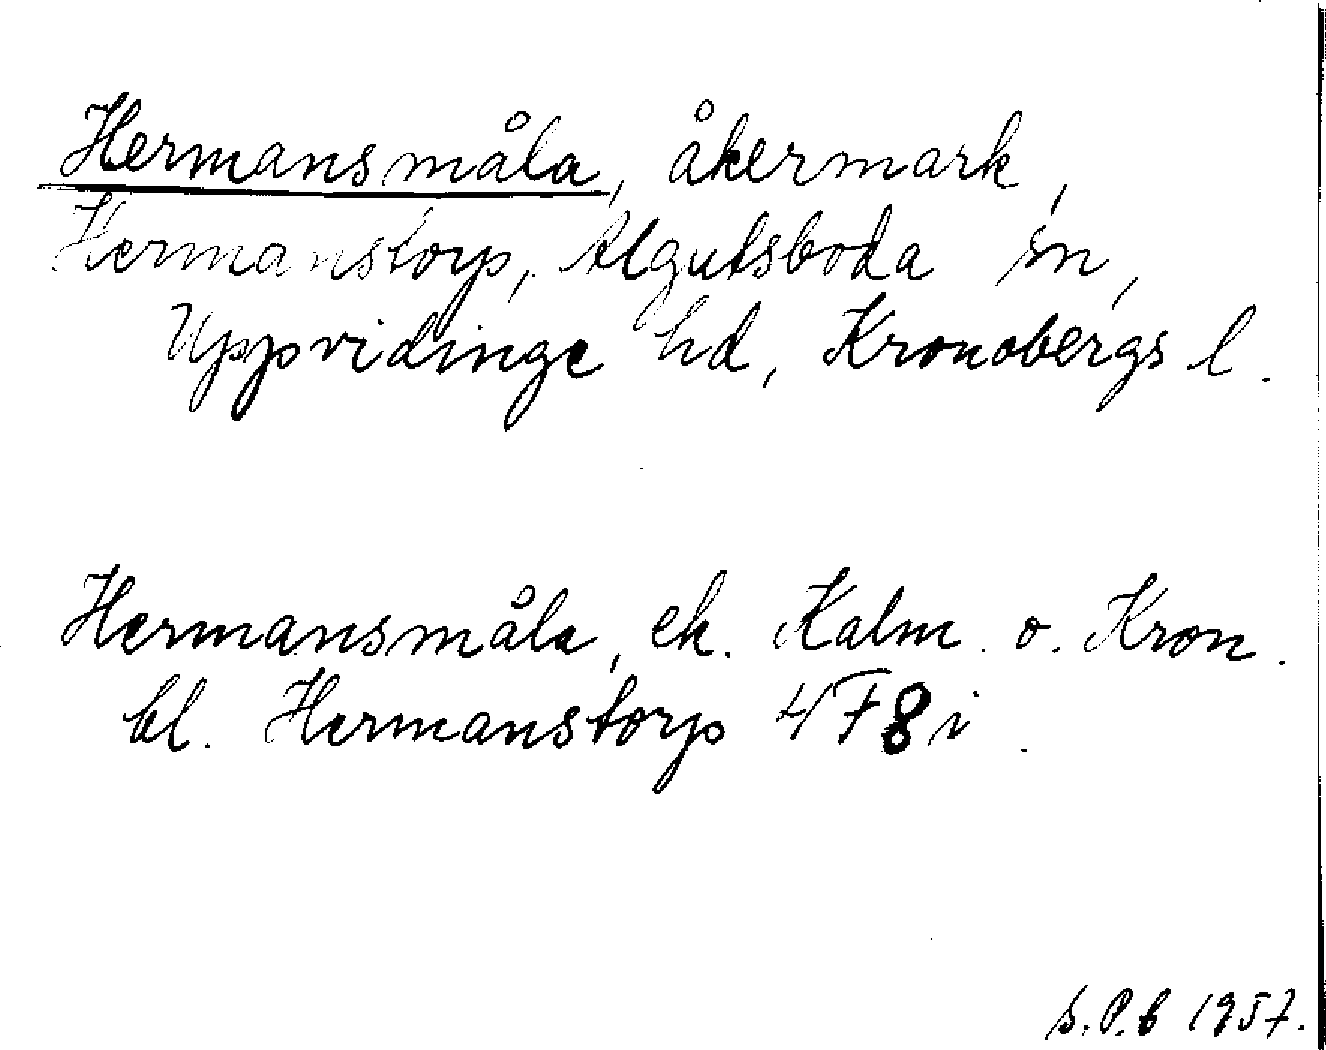 Hermansmåla, åkermark,
Hermanstorp, Algutsboda sn,
Uppvidinge hd, Kronobergs l.
Hermansmåla, ek. Kalm. o. Kron.
bl. Hermanstorp 4F8i.
S.P.B 1957.